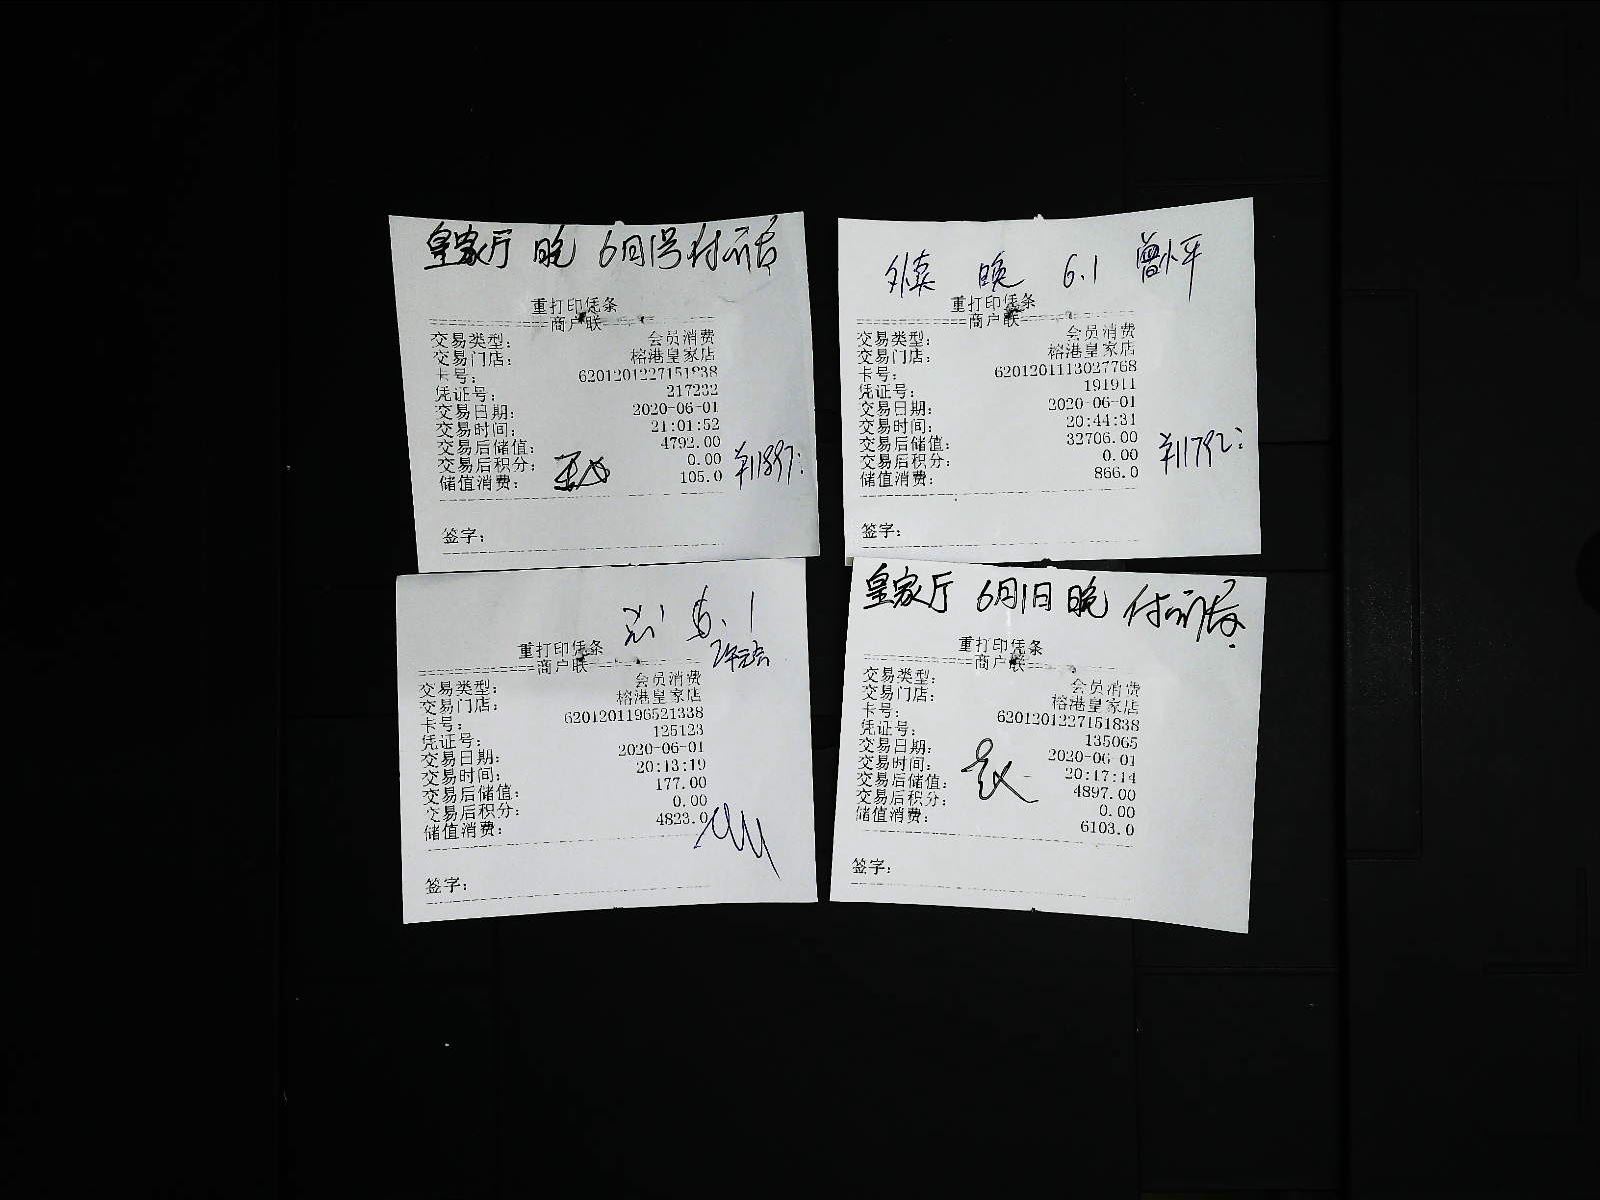 皇家厅 晚 6月1号付
重打印凭条
商户联
交易类型: 会员消费
交易门店: 榕港皇家店
卡号: 6201201227151838
凭证号: 217232
交易日期: 2020-06-01
交易时间: 21:01:52
交易后储值: 4792.00
交易后积分: 0.00
储值消费: 105.0
¥11897:
签字:
晚 6.1 曾小平
重打印凭条
商户联
交易类型: 会员消费
交易门店: 榕港皇家店
卡号: 6201201113027768
凭证号: 191911
交易日期: 2020-06-01
交易时间: 20:44:31
交易后储值: 32706.00
交易后积分: 0.00
储值消费: 866.0
¥11792:
签字:
6.1
重打印凭条
商户联
交易类型: 会员消费
交易门店: 榕港皇家店
卡号: 6201201196521338
凭证号: 125123
交易日期: 2020-06-01
交易时间: 20:13:19
交易后储值: 177.00
交易后积分: 0.00
储值消费: 4823.0
签字:
皇家厅 6月1日 晚 付
重打印凭条
商户联
交易类型: 会员消费
交易门店: 榕港皇家店
卡号: 6201201227151838
凭证号: 135065
交易日期: 2020-06-01
交易时间: 20:17:14
交易后储值: 4897.00
交易后积分: 0.00
储值消费: 6103.0
签字: